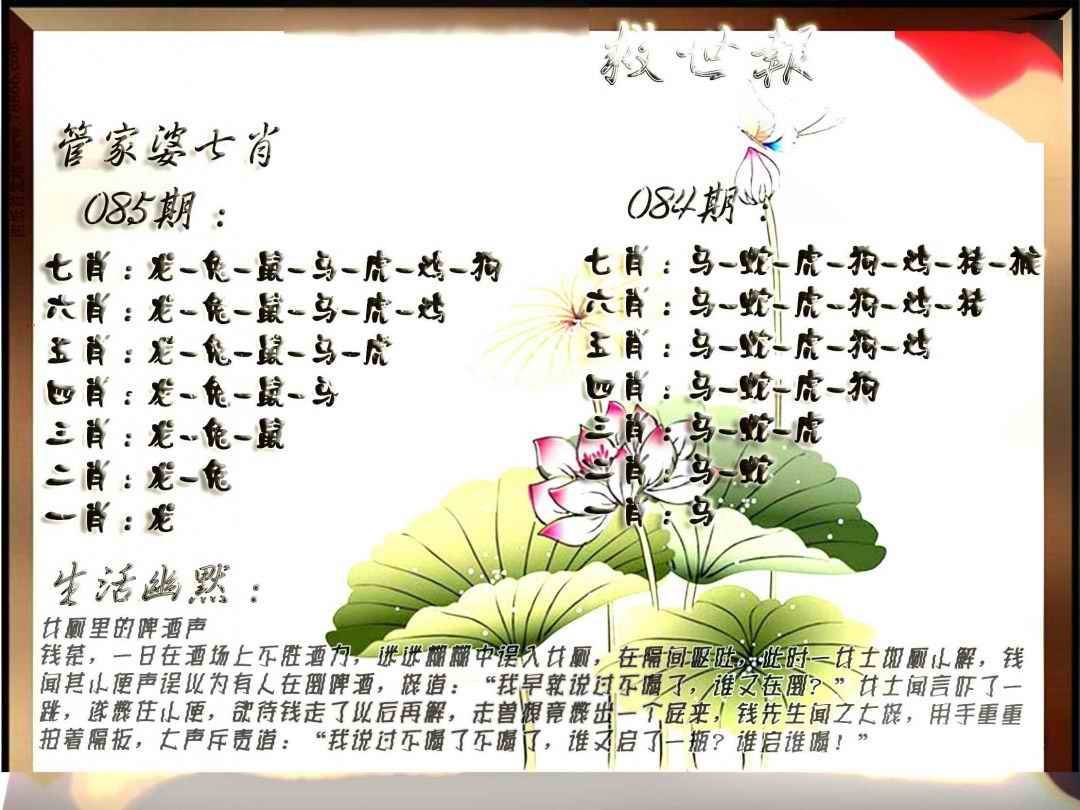 救世報
管家婆七肖
085期：
七肖：龙-兔-鼠-马-虎-鸡-狗
六肖：龙-兔-鼠-马-虎-鸡
五肖：龙-兔-鼠-马-虎
四肖：龙-兔-鼠-马
三肖：龙-兔-鼠
二肖：龙-兔
一肖：龙
084期：
七肖：马-蛇-虎-狗-鸡-猪-猴
六肖：马-蛇-虎-狗-鸡-猪
五肖：马-蛇-虎-狗-鸡
四肖：马-蛇-虎-狗
三肖：马-蛇-虎
二肖：马-蛇
一肖：马
生活幽默：
女厕里的啤酒声
钱某，一日在酒场上不胜酒力，迷迷糊糊中误入女厕，在隔间呕吐。此时一女士如厕小解，钱
闻其小便声误以为有人在倒啤酒，怒道：“我早就说过不喝了，谁又在倒？”女士闻言吓了一
跳，遂憋住小便，欲待钱走了以后再解，未曾想竟憋出一个屁来，钱先生闻之大怒，用手重重
拍着隔板，大声斥责道：“我说过不喝了不喝了，谁又启了一瓶？谁启谁喝！”